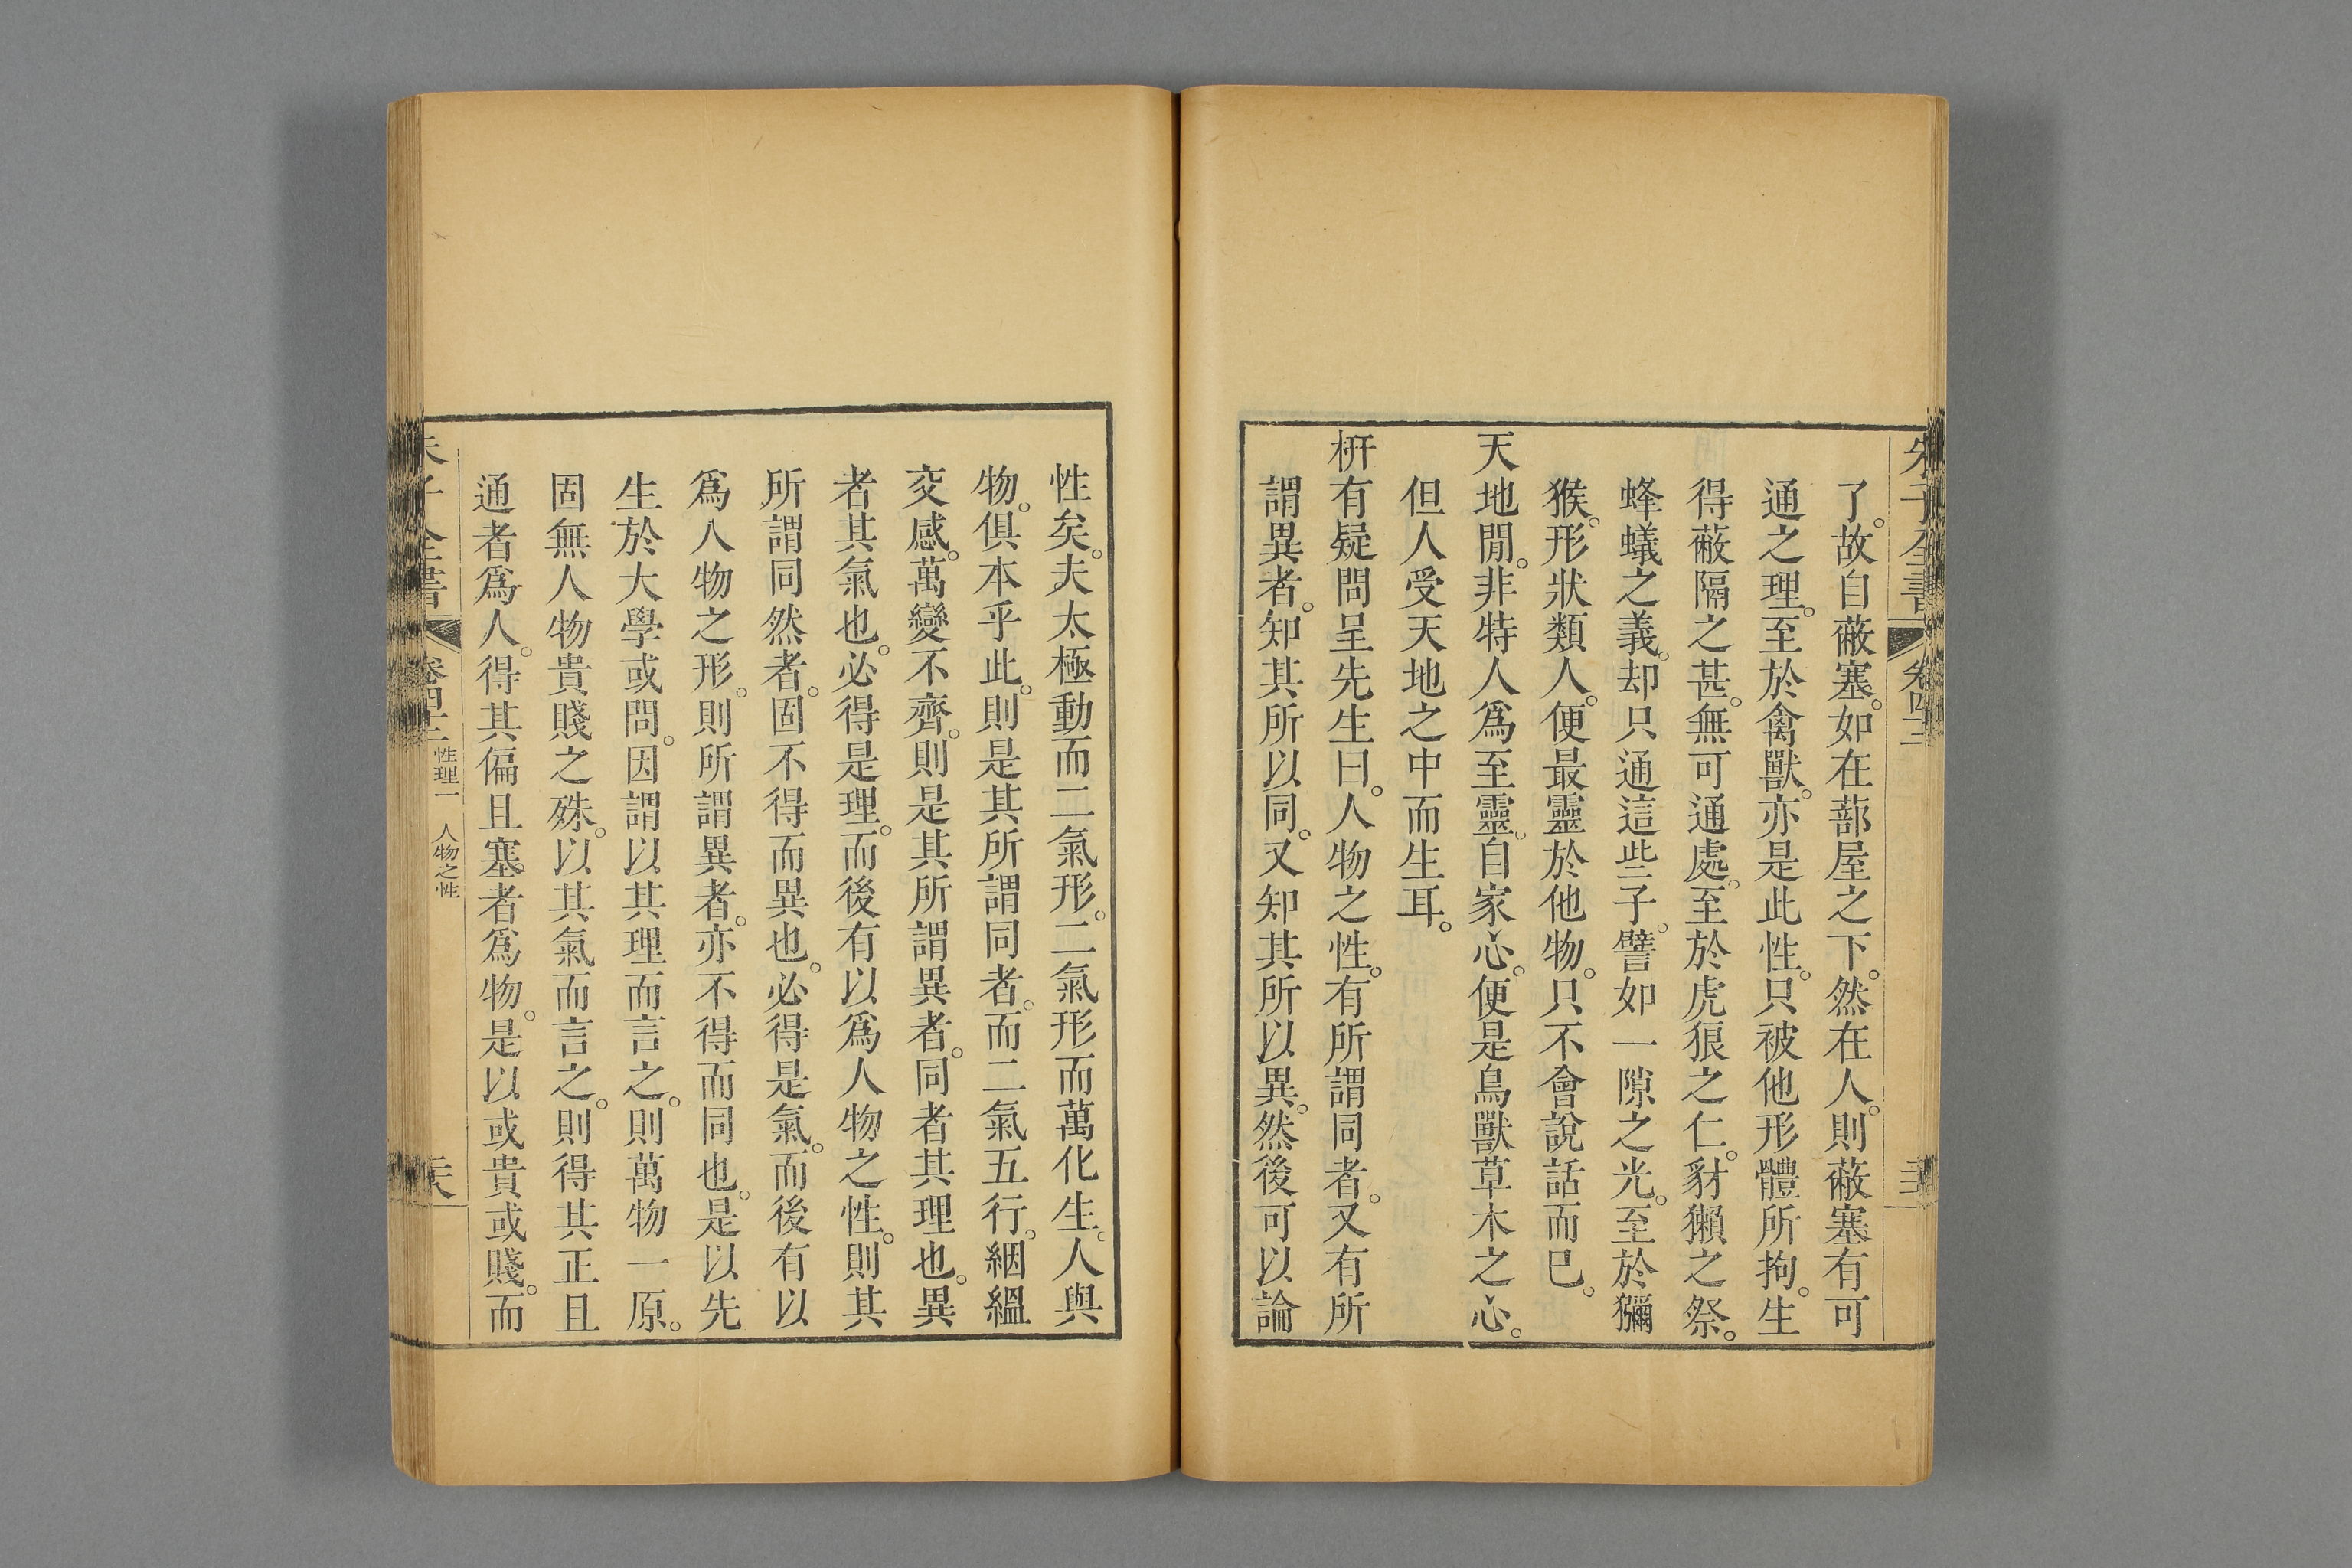 朱子全書 卷四十二
了。故自蔽塞。如在蔀屋之下。然在人。則蔽塞有可
通之理。至於禽獸。亦是此性。只被他形體所拘。生
得蔽隔之甚。無可通處。至於虎狼之仁。豺獺之祭。
蜂蟻之義。却只通這些子。譬如一隙之光。至於獼
猴。形狀類人。便最靈於他物。只不會說話而已。
天地閒。非特人爲至靈。自家心。便是鳥獸草木之心。
但人受天地之中而生耳。
枅有疑問呈先生曰。人物之性。有所謂同者。又有所
謂異者。知其所以同。又知其所以異。然後可以論
性矣。夫太極動而二氣形。二氣形而萬化生。人與
物。俱本乎此。則是其所謂同者。而二氣五行。絪縕
交感。萬變不齊。則是其所謂異者。同者其理也。異
者其氣也。必得是理。而後有以爲人物之性。則其
所謂同然者。固不得而異也。必得是氣。而後有以
爲人物之形。則所謂異者。亦不得而同也。是以先
生於大學或問。因謂以其理而言之。則萬物一原。
固無人物貴賤之殊。以其氣而言之。則得其正且
通者爲人。得其偏且塞者爲物。是以或貴或賤。而
朱子全書 卷四十二 性理一 人物之性